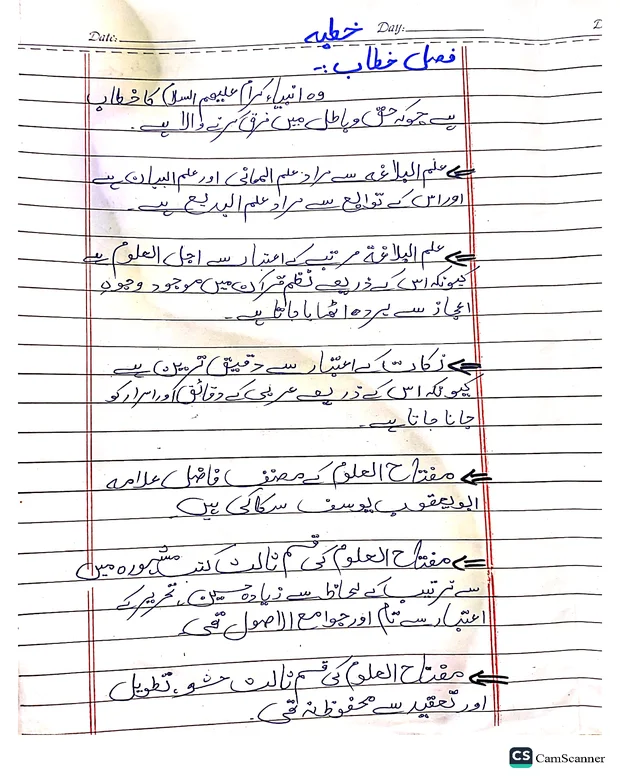 Date: خطبہ Day:
فصل خطاب :-
وہ انبیاء کرام علیھم السلام کا خطاب
ہے جوکہ حق و باطل میں فرق کرنے والا ہے۔
⇐ علم البلاغہ سے مراد علم المعانی اور علم البیان ہے
اور اس کے توابع سے مراد علم البدیع ہے۔
⇐ علم البلاغة مرتبے کے اعتبار سے اجل العلوم ہے
کیونکہ اس کے ذریعے نظم قرآن میں موجود وجوہ
اعجاز سے پردہ اٹھایا جاتا ہے۔
⇐ ذکاوت کے اعتبار سے دقیق ترین ہے
کیونکہ اس کے ذریعے عربی کے دقائق اور اسرار کو
جانا جاتا ہے۔
⇐ مفتاح العلوم کے مصنف فاضل علامہ
ابو یعقوب یوسف سکاکی ہیں
⇐ مفتاح العلوم کی قسم ثالث کتب مشہورہ میں
سے ترتیب کے لحاظ سے زیادہ حسین، تحریر کے
اعتبار سے تام اور جوامع الاصول تھی
⇐ مفتاح العلوم کی قسم ثالث حشو، تطویل
اور تعقید سے محفوظ نہ تھی۔
CS CamScanner